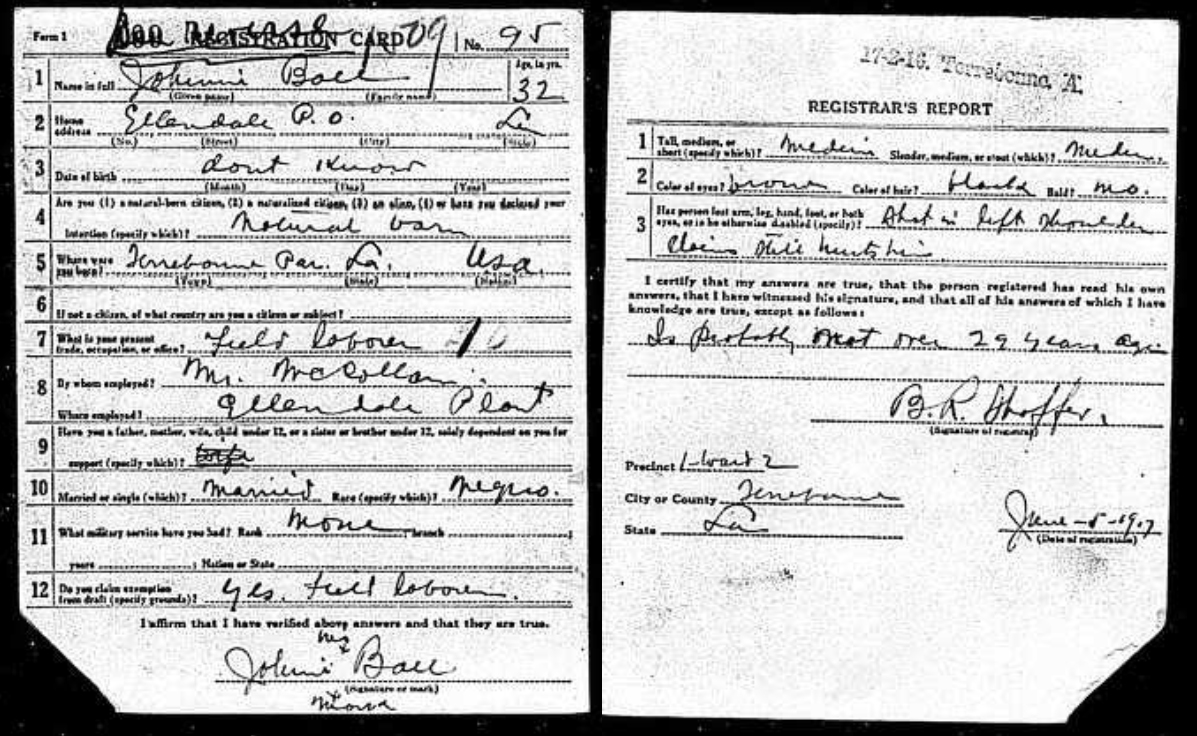 Form 1
REGISTRATION CARD
No. 95
1 Name in full Johnnie Ball
Age, in yrs. 32
(Given name) (Family name)
2 Home address Ellendale P.O. La
(No.) (Street) (City) (State)
3 Date of birth dont know
(Month) (Day) (Year)
4 Are you (1) a natural-born citizen, (2) a naturalized citizen, (3) an alien, (4) or have you declared your
intention (specify which)? Natural born
5 Where were you born? Terrebonne Par. La. Usa.
(Town) (State) (Nation)
6 If not a citizen, of what country are you a citizen or subject?
7 What is your present trade, occupation, or office? Field laborer
8 By whom employed? Mr. McCollam.
Where employed? Ellendale Plant
9 Have you a father, mother, wife, child under 12, or a sister or brother under 12, solely dependent on you for
support (specify which)? wife
10 Married or single (which)? Married Race (specify which)? Negro.
11 What military service have you had? Rank None ; branch ;
years ; Nation or State
12 Do you claim exemption from draft (specify grounds)? Yes. Field laborer.
I affirm that I have verified above answers and that they are true.
his
Johnie x Ball
(Signature or mark)
mark
17-2-16. Terrebonne, A.
REGISTRAR'S REPORT
1 Tall, medium, or short (specify which)? Medium Slender, medium, or stout (which)? Medium
2 Color of eyes? brown Color of hair? black Bald? no.
3 Has person lost arm, leg, hand, foot, or both
eyes, or is he otherwise disabled (specify)? Shot in left shoulder
claims still hurts him
I certify that my answers are true, that the person registered has read his own
answers, that I have witnessed his signature, and that all of his answers of which I have
knowledge are true, except as follows:
Is Probably not over 29 years age
B.R. Shaffer.
(Signature of registrar)
Precinct 1 Ward 2
City or County Terrebonne
State La
June-5-1917
(Date of registration)